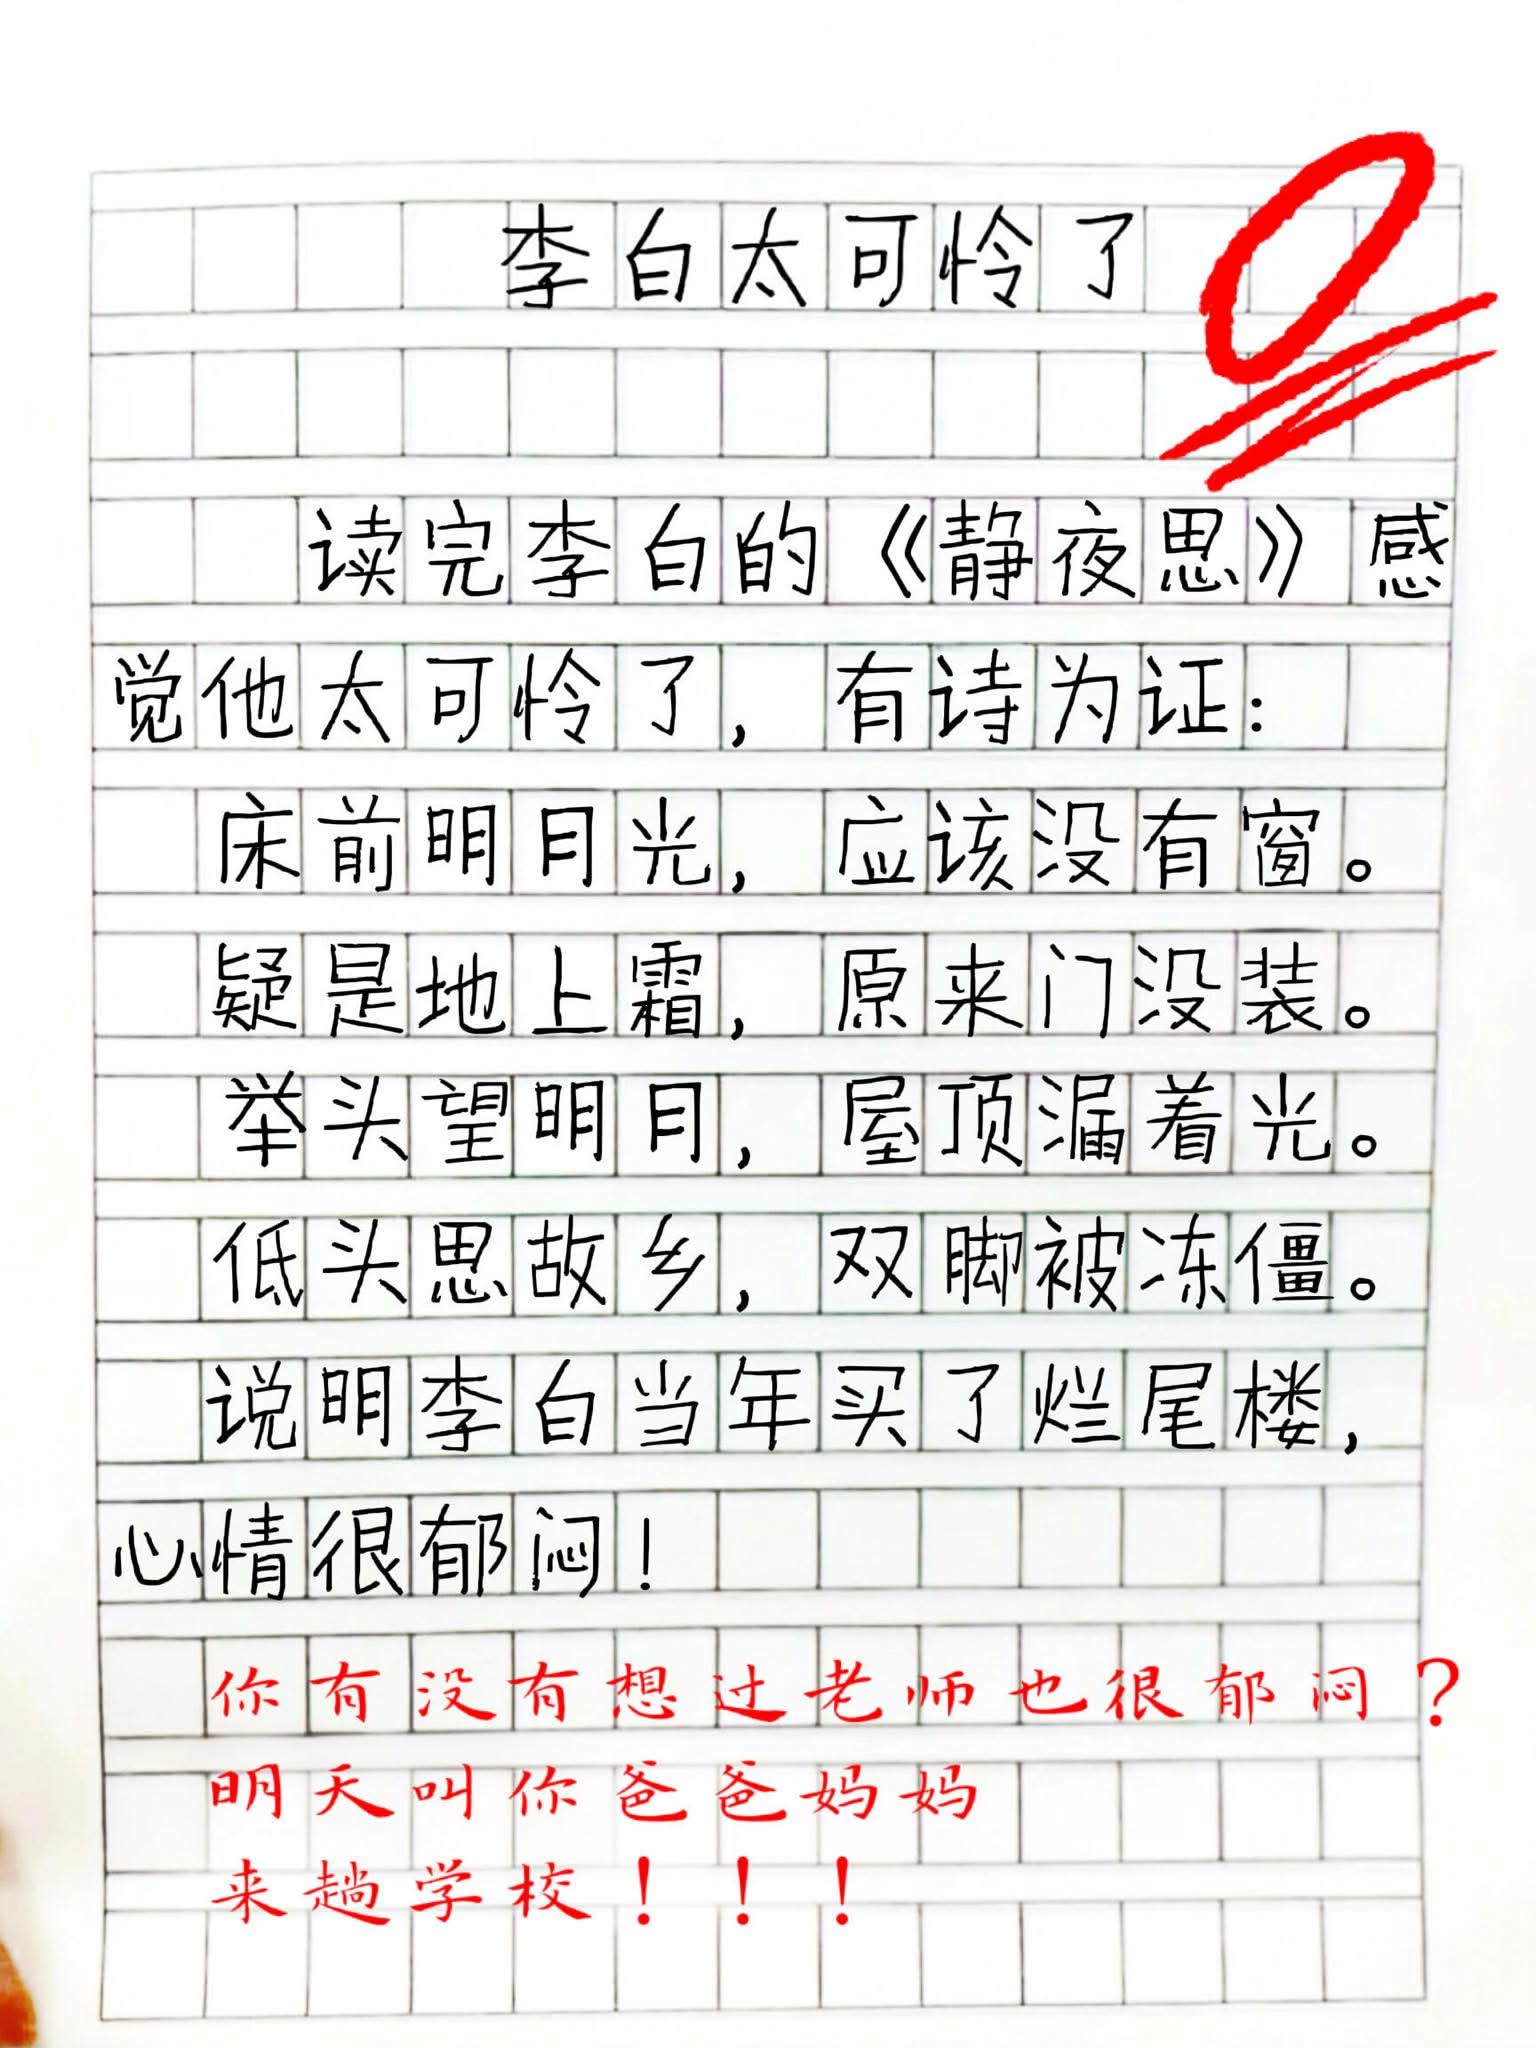 李白太可怜了
0
读完李白的《静夜思》感
觉他太可怜了，有诗为证：
床前明月光，应该没有窗。
疑是地上霜，原来门没装。
举头望明月，屋顶漏着光。
低头思故乡，双脚被冻僵。
说明李白当年买了烂尾楼，
心情很郁闷！
你有没有想过老师也很郁闷？
明天叫你爸爸妈妈
来趟学校！！！